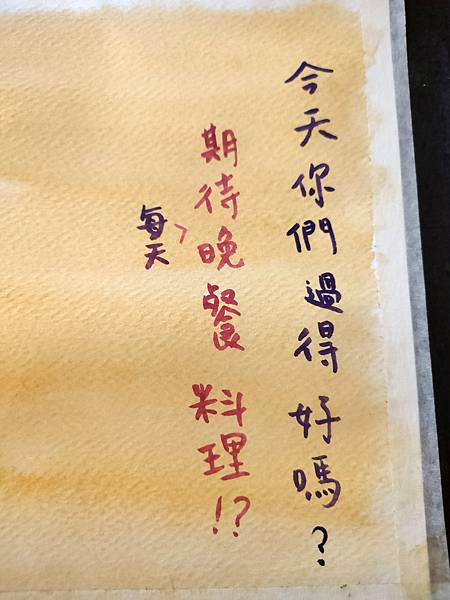 今天你們過得好嗎?
期待晚餐料理!?
每天